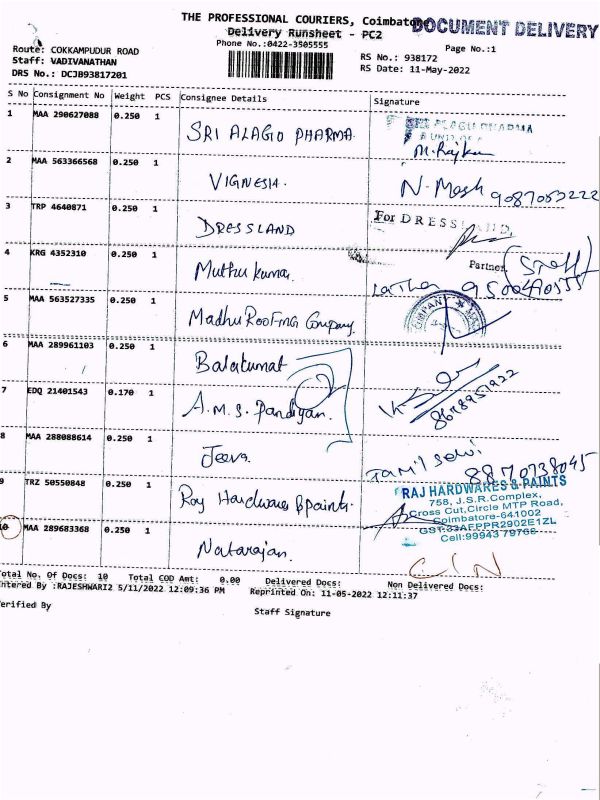 THE PROFESSIONAL COURIERS, Coimbatore
DOCUMENT DELIVERY
Delivery Runsheet - PC2
Phone No.:0422-3505555
Page No.:1
Route: COKKAMPUDUR ROAD
Staff: VADIVANATHAN
DRS No.: DCJB93817201
RS No.: 938172
RS Date: 11-May-2022
S No Consignment No Weight PCS Consignee Details Signature
1 MAA 290627088 0.250 1 SRI ALAGIO PHARMA
M. Rajku
2 MAA 563366568 0.250 1 VIGNESIA. N. Mesh 9087083222
3 TRP 4640871 0.250 1 DRESSLAND For DRESSLAND,
Partner.
4 KRG 4352310 0.250 1 Muthu kumar (Staff)
Latha 9500490555
5 MAA 563527335 0.250 1 Madhu Roofing Company
6 MAA 289961103 0.250 1
7 EDQ 21401543 0.170 1 A.M.S. Pandiyan. 8678951922
8 MAA 288088614 0.250 1 Jeeva. Tamil Selvi 8870738045
9 TRZ 50550848 0.250 1 Raj Hardwares & paints.
RAJ HARDWARES & PAINTS
758, J.S.R.Complex,
Cross Cut,Circle MTP Road,
Coimbatore-641002
GST:33AFPPR2902E1ZL
Cell:99943 79766
10 MAA 289683368 0.250 1 Natarajan. C/N
Total No. Of Docs: 10 Total COD Amt: 0.00 Delivered Docs: Non Delivered Docs:
Entered By :RAJESHWARI2 5/11/2022 12:09:36 PM Reprinted On: 11-05-2022 12:11:37
Verified By Staff Signature